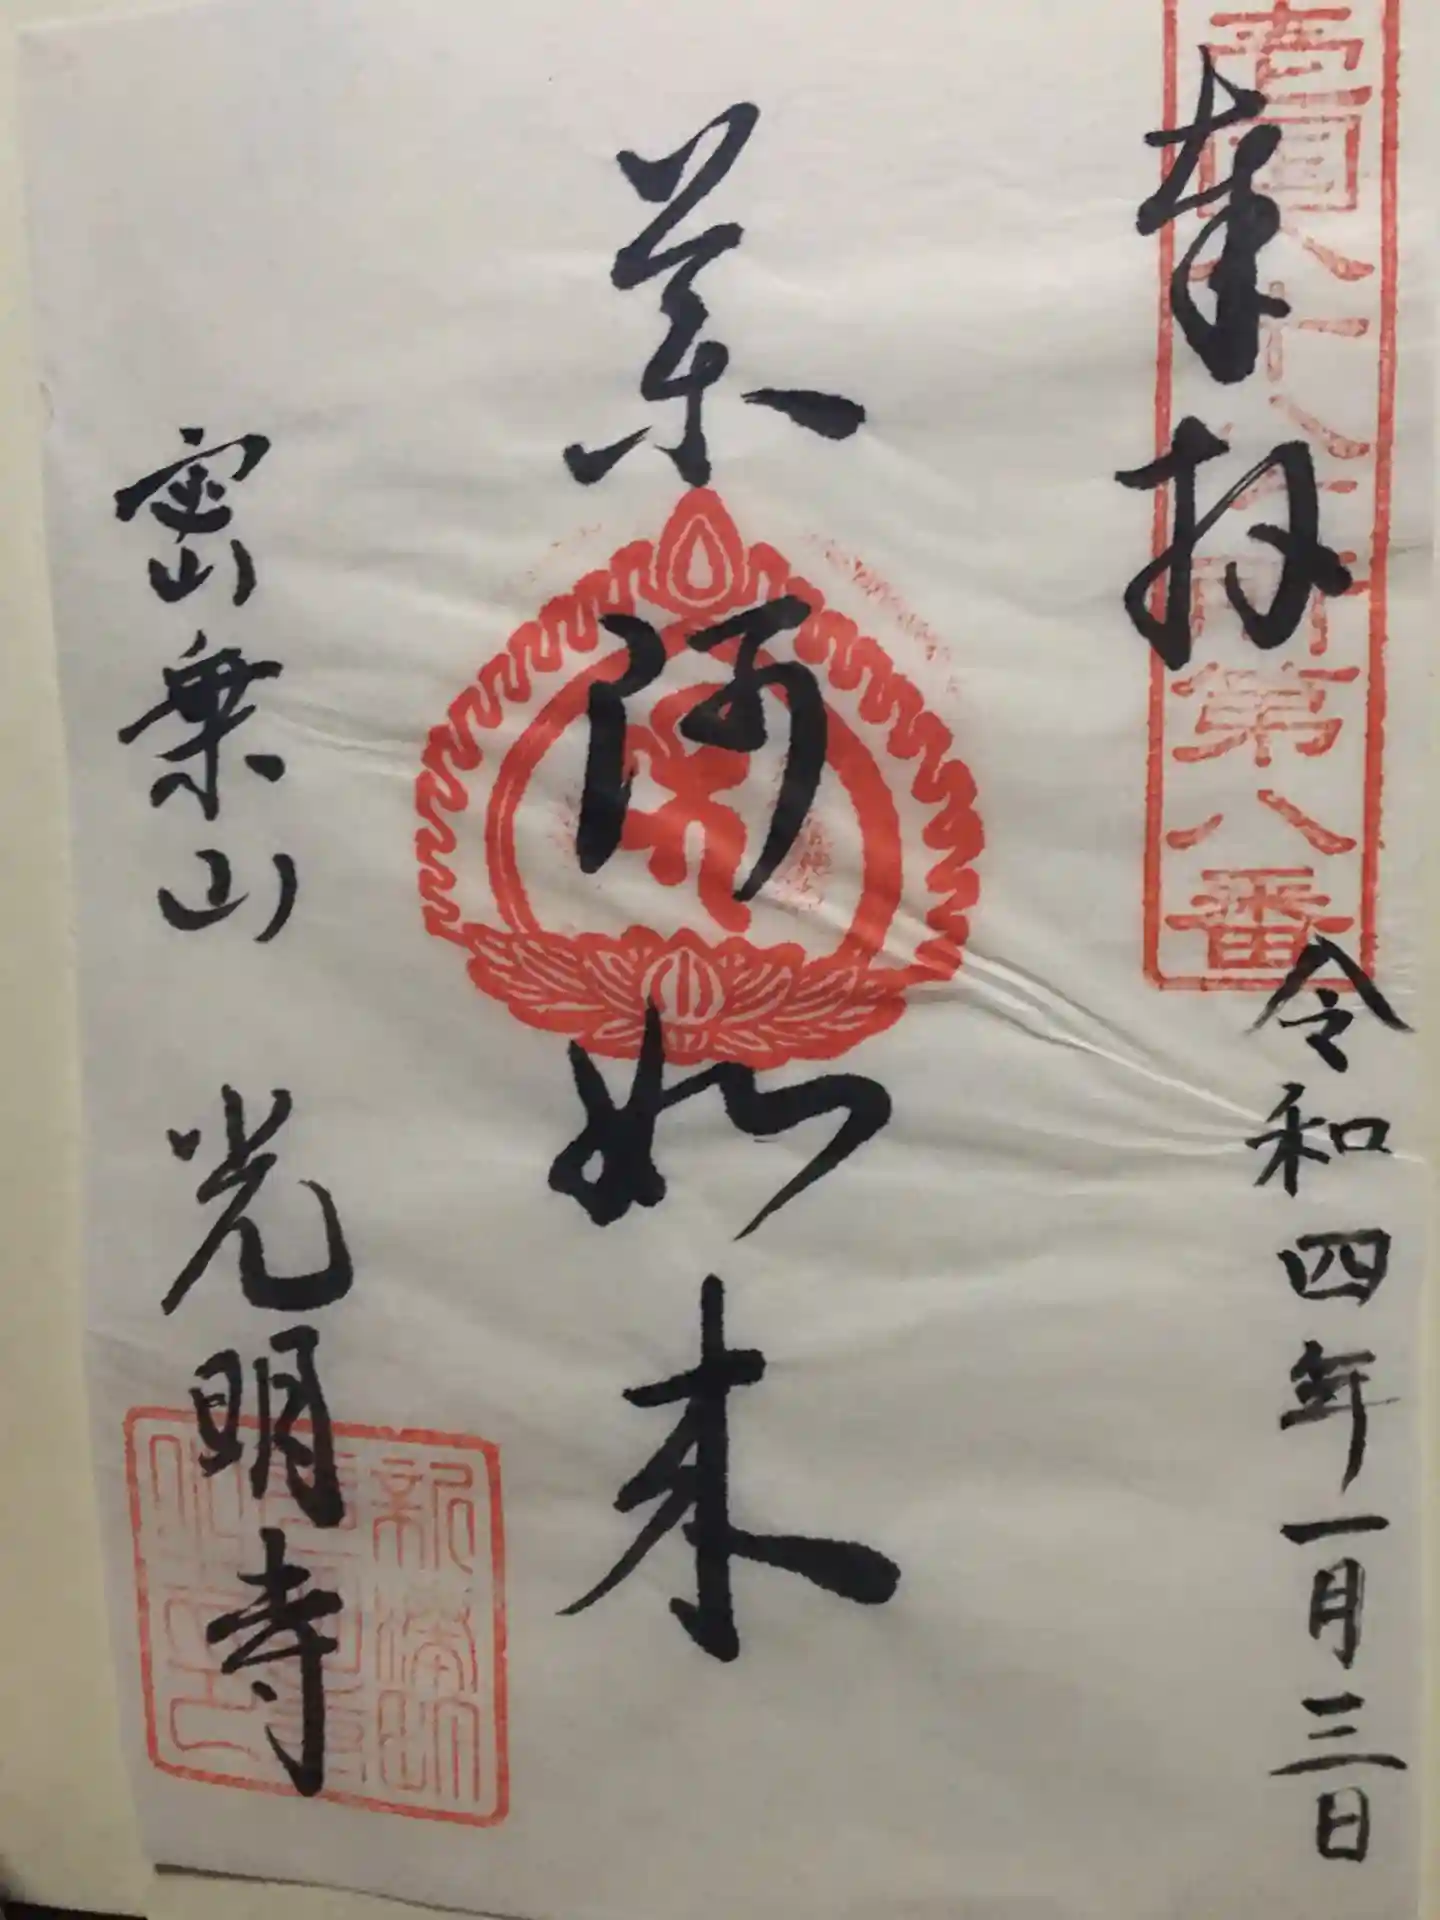 奉拝
第八番
令和四年一月三日
薬師如来
密乗山 光明寺